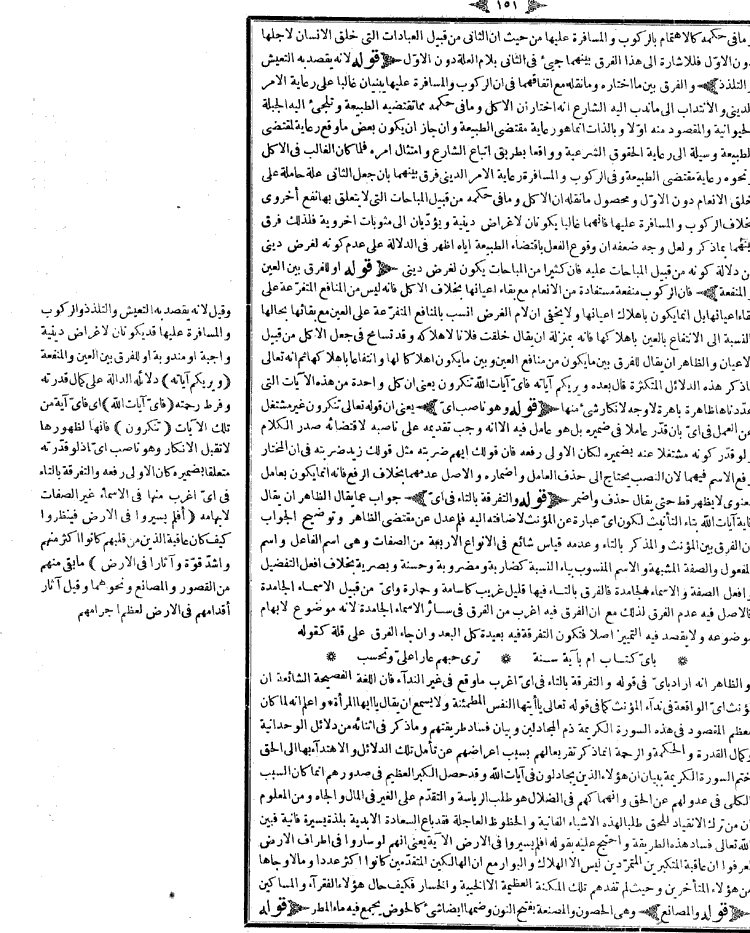 ١٥١
ومافى حكمه كالاهتمام بالركوب والمسافرة عليها من حيث ان الثانى من قبيل العبادات التى خلق الانسان لاجلها
دون الاول فللاشارة الى هذا الفرق بينهما جيئ فى الثانى بلام العلة دون الاول قوله لانه يقصد به التعيش
والتلذذ والفرق بين ما اختاره وما نقله مع اتفاقهما فى ان الركوب والمسافرة عليها يبنيان غالبا على رعاية الامر
الدينى والانتداب الى ماندب اليه الشارع انه اختار ان الاكل ومافى حكمه مما تقتضيه الطبيعة وتلجئ اليه الجبلة
الحيوانية والمقصود منه اولا وبالذات انما هو رعاية مقتضى الطبيعة وان جاز ان يكون بعض ما وقع رعاية لمقتضى
الطبيعة وسيلة الى رعاية الحقوق الشرعية وواقعا بطريق اتباع الشارع وامتثال امره فلما كان الغالب فى الاكل
ونحوه رعاية مقتضى الطبيعة وفى الركوب والمسافرة رعاية الامر الدينى فرق بينهما بان جعل الثانى علة حاملة على
خلق الانعام دون الاول ومحصول ما نقله ان الاكل ومافى حكمه من قبيل المباحات التى لايتعلق بها نفع أخروى
بخلاف الركوب والمسافرة عليها فانهما غالبا يكونان لاغراض دينية ويؤديان الى مثوبات اخروية فلذلك فرق
بينهما بما ذكر ولعل وجه ضعفه ان وقوع الفعل باقتضاء الطبيعة اياه اظهر فى الدلالة على عدم كونه لغرض دينى
من دلالة كونه من قبيل المباحات عليه فان كثيرا من المباحات يكون لغرض دينى قوله او للفرق بين العين
والمنفعة فان الركوب منفعة مستفادة من الانعام مع بقاء اعيانها بخلاف الاكل فانه ليس من المنافع المتفرعة على
بقاء اعيانها بل انما يكون باهلاك اعيانها ولايخفى ان لام الغرض انسب بالمنافع المتفرعة على العين مع بقائها بحالها
بالنسبة الى الانتفاع بالعين باهلاكها فانه بمنزلة ان يقال خلقت فلانا لاهلاكه وقد تسامح فى جعل الاكل من قبيل
الاعيان والظاهر ان يقال للفرق بين مايكون من منافع العين وبين مايكون اهلاكا لها وانتفاعا باهلاكها ثم انه تعالى
لما ذكر هذه الدلائل المتكثرة قال بعده ويريكم آياته فاى آيات الله تنكرون يعنى ان كل واحدة من هذه الآيات التى
عددناها ظاهرة باهرة لاوجه لانكار شئ منها قوله وهو ناصب اى يعنى ان قوله تعالى تنكرون غير مشتغل
عن العمل فى اى بان قدر عاملا فى ضميره بل هو عامل فيه الاانه وجب تقديمه على ناصبه لاقتضائه صدر الكلام
ولو قدر كونه مشتغلا عنه بضميره لكان الاولى رفعه فان قولك ايهم ضربته مثل قولك زيد ضربته فى ان المختار
رفع الاسم فيهما لان النصب يحتاج الى حذف العامل واضماره والاصل عدمهما بخلاف الرفع فانه انما يكون بعامل
معنوى لايظهر قط حتى يقال حذف واضمر قوله والتفرقة بالتاء فى اى جواب عما يقال الظاهر ان يقال
فاية آيات الله بتاء التأنيث لكون اى عبارة عن المؤنث لاضافته اليه فلم عدل عن مقتضى الظاهر وتوضيح الجواب
ان الفرق بين المؤنث والمذكر بالتاء وعدمه قياس شائع فى الانواع الاربعة من الصفات وهى اسم الفاعل واسم
المفعول والصفة المشبهة والاسم المنسوب بياء النسبة كضاربة ومضروبة وحسنة وبصرية بخلاف افعل التفضيل
وافعل الصفة والاسماء الجامدة فالفرق بالتاء فيها قليل غريب كاسامة وحمارة واى من قبيل الاسماء الجامدة
فالاصل فيه عدم الفرق لذلك مع ان الفرق فيه اغرب من الفرق فى سائر الاسماء الجامدة لانه موضوع لابهام
موضوعه ولايقصد فيه التمييز اصلا فتكون التفرقة فيه بعيدة كل البعد وان جاء الفرق على قلة كقوله
بأى كتاب ام بأية سنة * ترى حبهم عارا على وتحسب
والظاهر انه اراد باى فى قوله والتفرقة بالتاء فى اى اغرب ماوقع فى غير النداء فان اللغة الفصيحة الشائعة ان
يؤنث اى الواقعة فى نداء المؤنث كما فى قوله تعالى يا أيتها النفس المطمئنة ولايسمع ان يقال يا ايها المرأة * واعلم انه لما كان
معظم المقصود فى هذه السورة الكريمة ذم المجادلين وبيان فساد طريقتهم وما ذكر فى اثنائه من دلائل الوحدانية
وكمال القدرة والحكمة والرحمة انما ذكر تفريعا لهم بسبب اعراضهم عن تأمل تلك الدلائل والاهتداء بها الى الحق
ختم السورة الكريمة ببيان ان هؤلاء الذين يجادلون فى آيات الله وقد حصل الكبر العظيم فى صدورهم انما كان السبب
الكلى فى عدولهم عن الحق وانهماكهم فى الضلال هو طلب الرياسة والتقدم على الغير فى المال والجاه ومن المعلوم
ان من ترك الانقياد للحق طلبا لهذه الاشياء الفانية والحظوظ العاجلة فقد باع السعادة الابدية بلذة يسيرة فانية فبين
الله تعالى فساد هذه الطريقة واحتج عليه بقوله افلم يسيروا فى الارض الآية يعنى انهم لو ساروا فى اطراف الارض
لعرفوا ان عاقبة المتكبرين المتمردين ليس الا الهلاك والبوار مع ان الهالكين المتقدمين كانوا اكثر عددا ومالا وجاها
من هؤلاء المتأخرين وحيث لم تفدهم تلك المكنة العظيمة الا الخيبة والخسار فكيف حال هؤلاء الفقراء والمساكين
قوله والمصانع وهى الحصون والمصنعة بفتح النون وضمها ايضا شئ كالحوض يجمع فيه ماء المطر قوله
وقيل لانه يقصد به التعيش والتلذذ والركوب
والمسافرة عليها قد يكونان لاغراض دينية
واجبة او مندوبة او للفرق بين العين والمنفعة
(ويريكم آياته) دلائله الدالة على كمال قدرته
وفرط رحمته (فاى آيات الله) اى فاى آية من
تلك الآيات (تنكرون) فانها لظهورها
لاتقبل الانكار وهو ناصب اى اذ لو قدرته
متعلقا بضميره كان الاولى رفعه والتفرقة بالتاء
فى اى اغرب منها فى الاسماء غير الصفات
لابهامه (أفلم يسيروا فى الارض فينظروا
كيف كان عاقبة الذين من قبلهم كانوا اكثر منهم
واشد قوة وآثارا فى الارض) مابقى منهم
من القصور والمصانع ونحوهما وقيل آثار
أقدامهم فى الارض لعظم اجرامهم